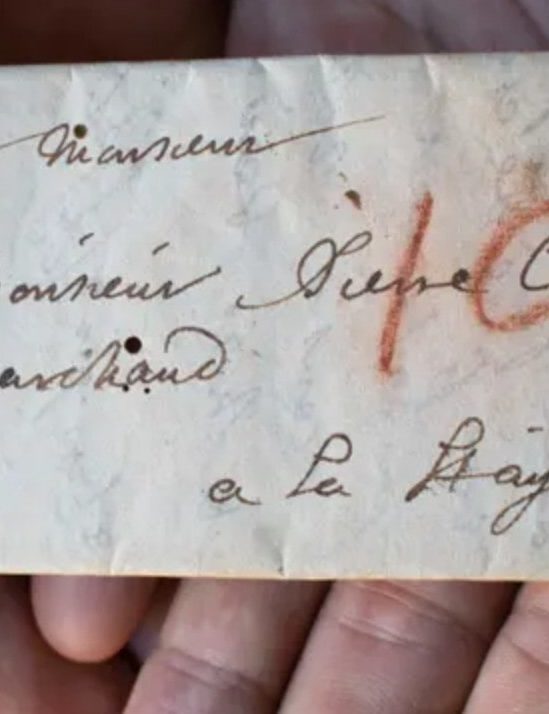 Monsieur
onsieur Pierre C
archand
a La Hay
10